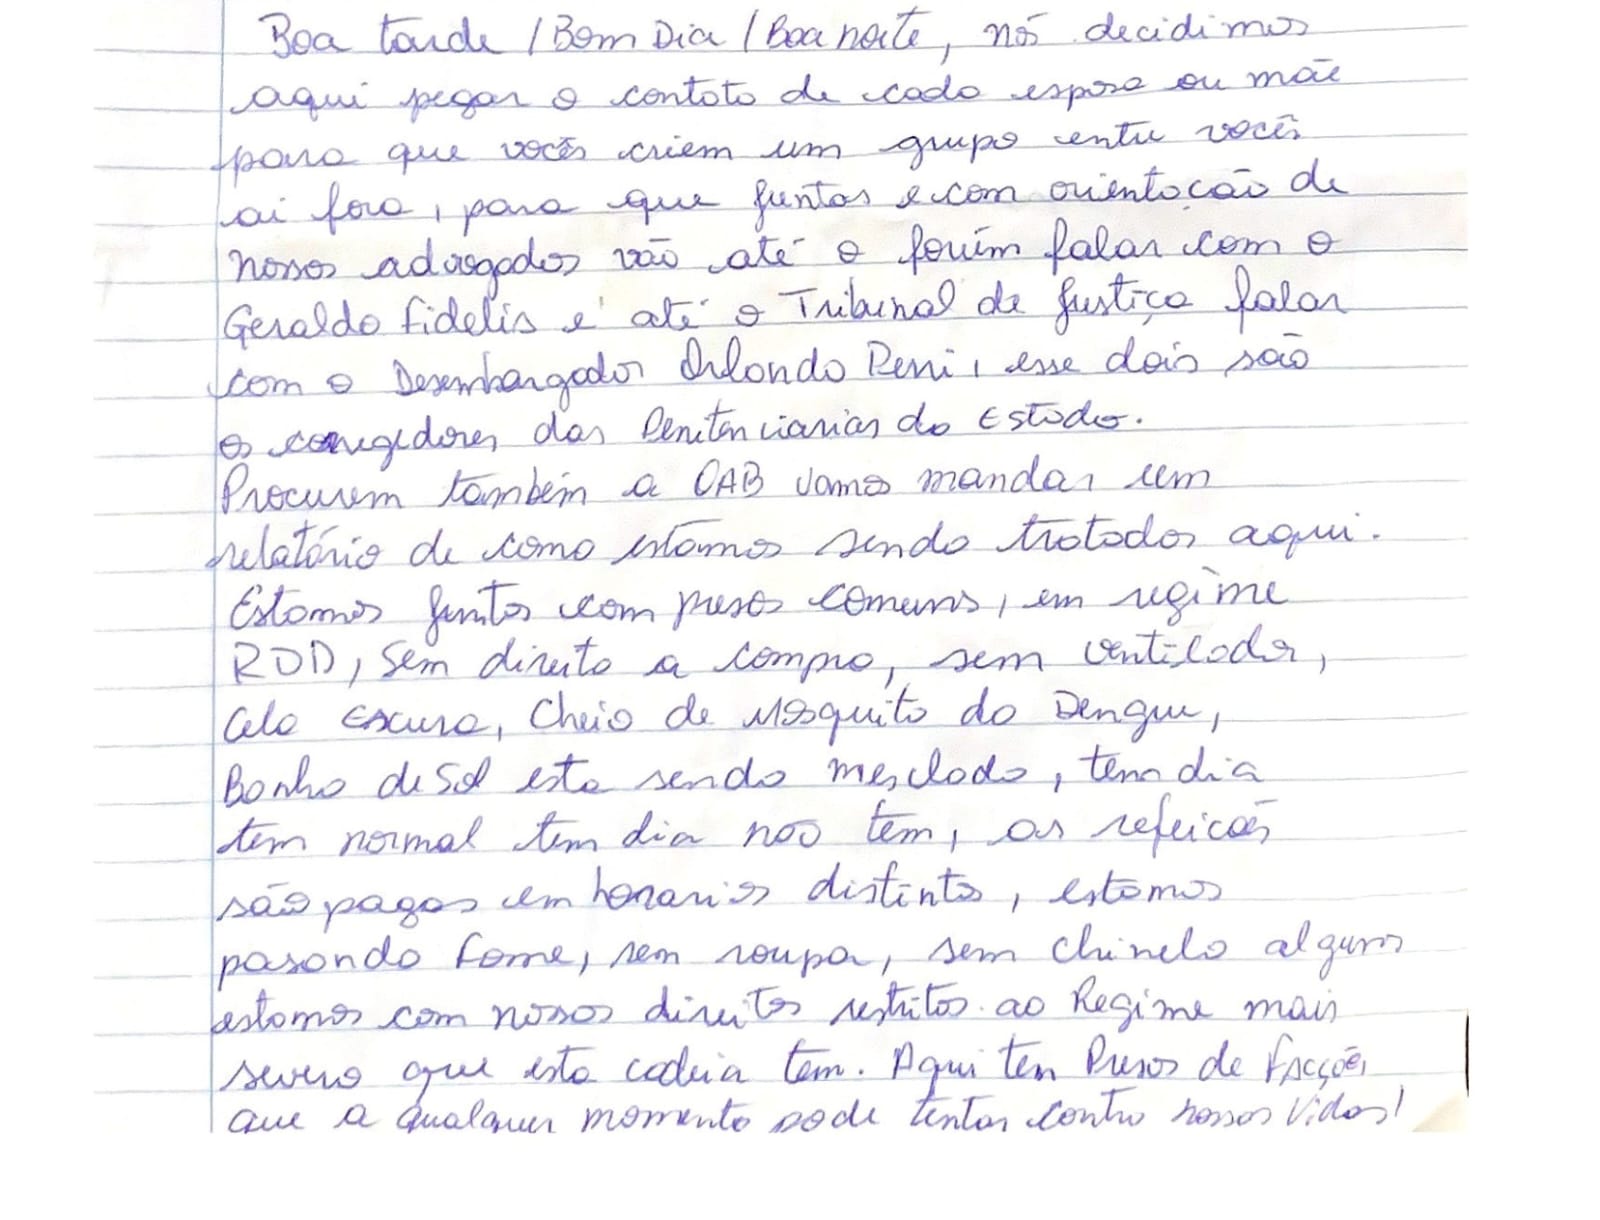 Boa tarde / Bom Dia / Boa noite, nós decidimos
aqui pegar o contato de cada esposa ou mãe
para que vocês criem um grupo entre vocês
ai fora, para que juntas e com orientação de
nossos advogados vão até o forúm falar com o
Geraldo Fidelis e até o Tribunal de Justiça falar
com o Desembargador Orlando Perri, esse dois são
os corregedores das Penitenciarias do Estado.
Procurem também a OAB vamos mandar um
relatório de como estamos sendo tratados aqui.
Estamos juntos com presos comuns, em regime
RDD, Sem direito a compra, sem ventilador,
Cela Escura, Cheio de Mosquito da Dengue,
Banho de Sol esta sendo mesclado, tem dia
tem normal tem dia não tem, as refeicões
são pagas em horarios distintos, estamos
pasando fome, sem roupa, sem chinelo alguns
estamos com nossos direitos restritos ao Regime mais
severo que esta cadeia tem. Aqui tem Presos de Facções
que a qualquer momento pode tentar contra nossas Vidas!